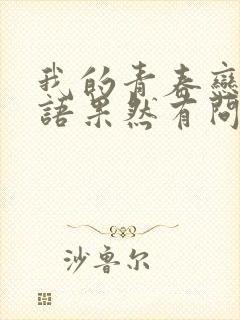 我的青春戀
語果然有問
沙鲁尔